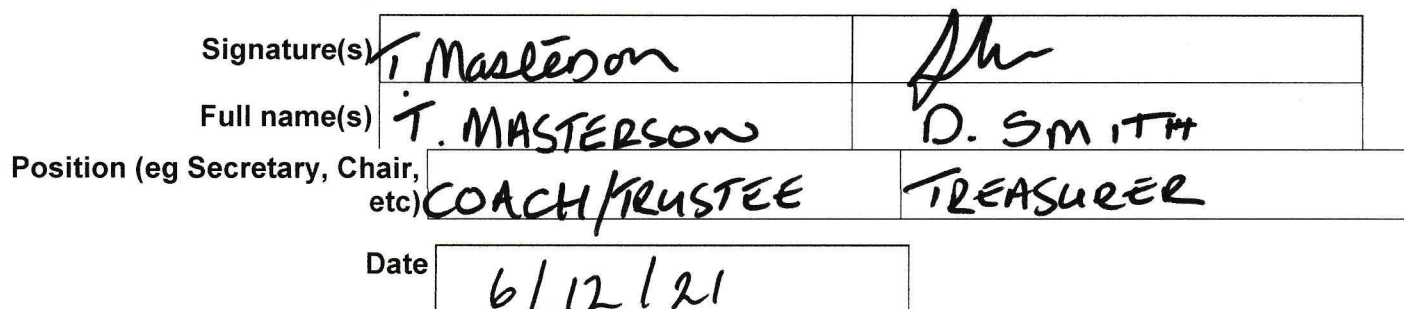 Signature(s) T Masterson
Full name(s) T. MASTERSON D. SMITH
Position (eg Secretary, Chair,
etc) COACH/TRUSTEE TREASURER
Date 6/12/21